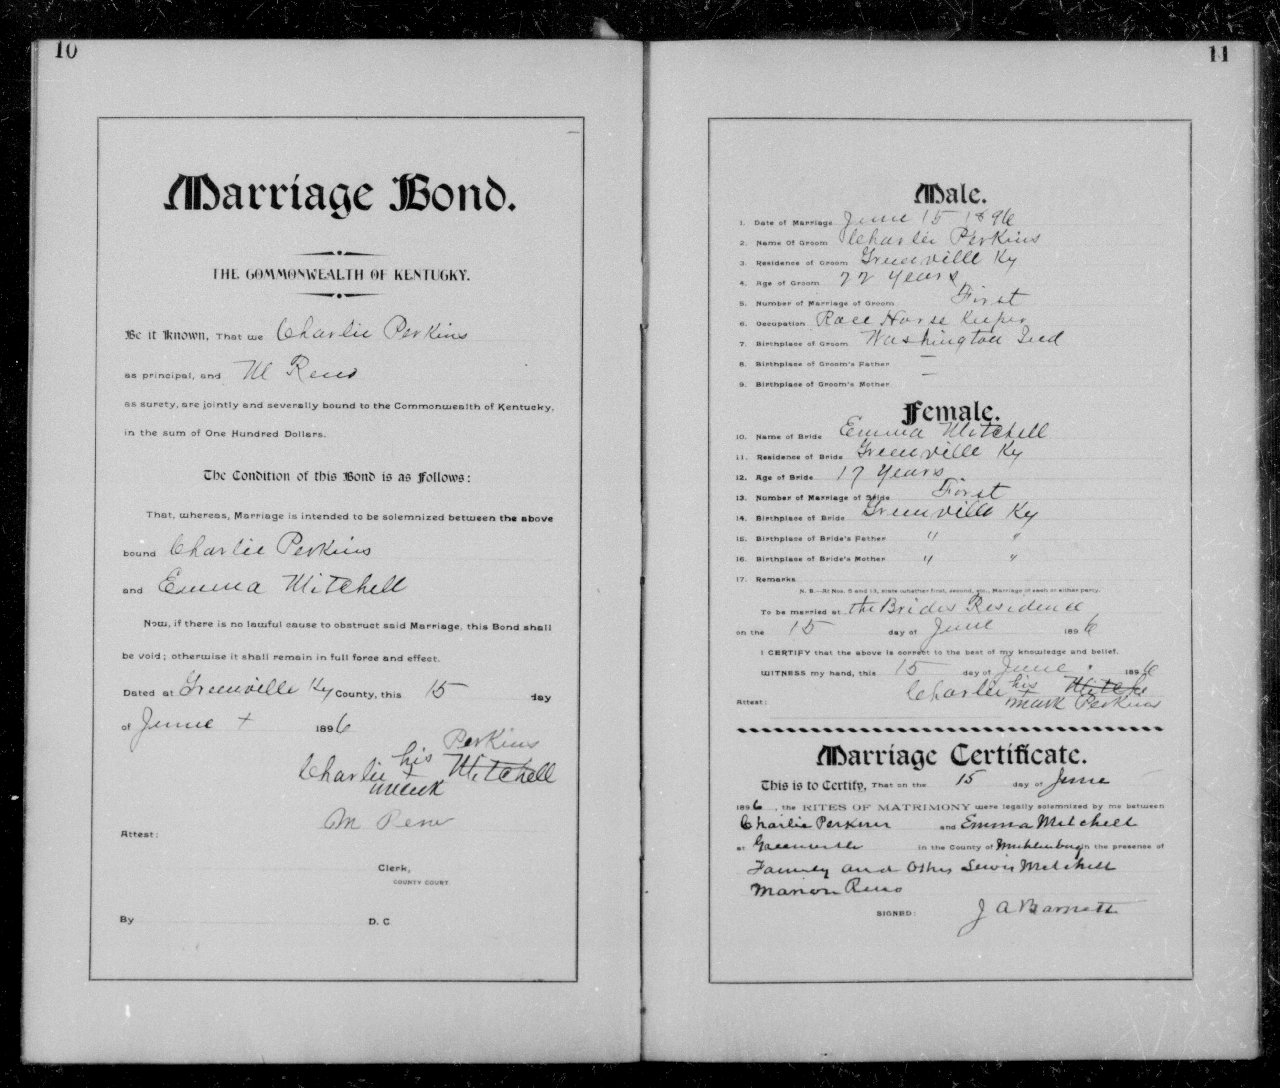 10
Marriage Bond.
THE COMMONWEALTH OF KENTUCKY.
Be it Known, That we Charlie Perkins
as principal, and M Reno
as surety, are jointly and severally bound to the Commonwealth of Kentucky,
in the sum of One Hundred Dollars.
The Condition of this Bond is as Follows:
That, whereas, Marriage is intended to be solemnized between the above
bound Charlie Perkins
and Emma Mitchell
Now, if there is no lawful cause to obstruct said Marriage, this Bond shall
be void; otherwise it shall remain in full force and effect.
Dated at Greenville Ky County, this 15 day
of June + 1896
Perkins
Charlie his Mitchell
+
mark
M Reno
Attest:
Clerk,
COUNTY COURT.
By D. C
11
Male.
1. Date of Marriage June 15 1896
2. Name Of Groom Charlie Perkins
3. Residence of Groom Greenville Ky
4. Age of Groom 22 years
5. Number of Marriage of Groom First
6. Occupation Race Horse Keeper
7. Birthplace of Groom Washington Ind
8. Birthplace of Groom's Father —
9. Birthplace of Groom's Mother —
Female.
10. Name of Bride Emma Mitchell
11. Residence of Bride Greenville Ky
12. Age of Bride 17 years
13. Number of Marriage of Bride First
14. Birthplace of Bride Greenville Ky
15. Birthplace of Bride's Father " "
16. Birthplace of Bride's Mother " "
17. Remarks
N. B.—At Nos. 5 and 13, state whether first, second, etc., Marriage of each or either party.
To be married at the Brides Residence
on the 15 day of June 1896
I CERTIFY that the above is correct to the best of my knowledge and belief.
WITNESS my hand, this 15 day of June 1896
Charlie his
Attest: + mark Perkins
Marriage Certificate.
This is to Certify, That on the 15 day of June
1896, the RITES OF MATRIMONY were legally solemnized by me between
Charlie Perkins and Emma Mitchell
at Greenville in the County of Muhlenburg in the presence of
Family and Others Lewis Mitchell
Marion Reno
SIGNED: J A Barnett